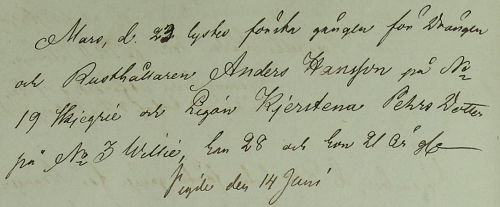 Mars, d. 23 lystes första gången för Drängen
och Rusthållaren Anders Hansson på No
19 Skjegrie och Pigan Kjerstena Pehrs Dotter
på No 3 Willie, han 28 och hon 21 år gl
Vigde den 14 Juni